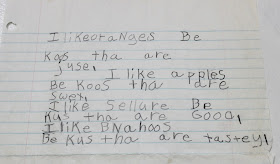 I like oranges Be
Kas tha are
juse.
I like apples
Be Koos tha are
Swex.
I like Sellure Be
Kus tha are Good,
I like BNahoos
Be Kus tha are tastey!